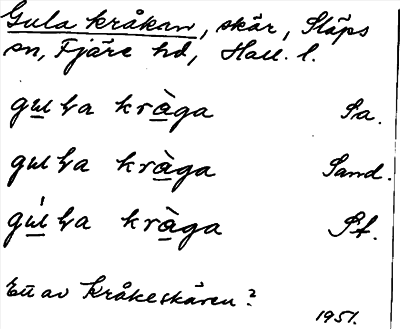 Gula kråkan, skär, Släps
sn, Fjäre hd, Hall. l.
kràga Sa.
kràga Sand.
kràga Sf.
En av Kråkeskären?
1951.